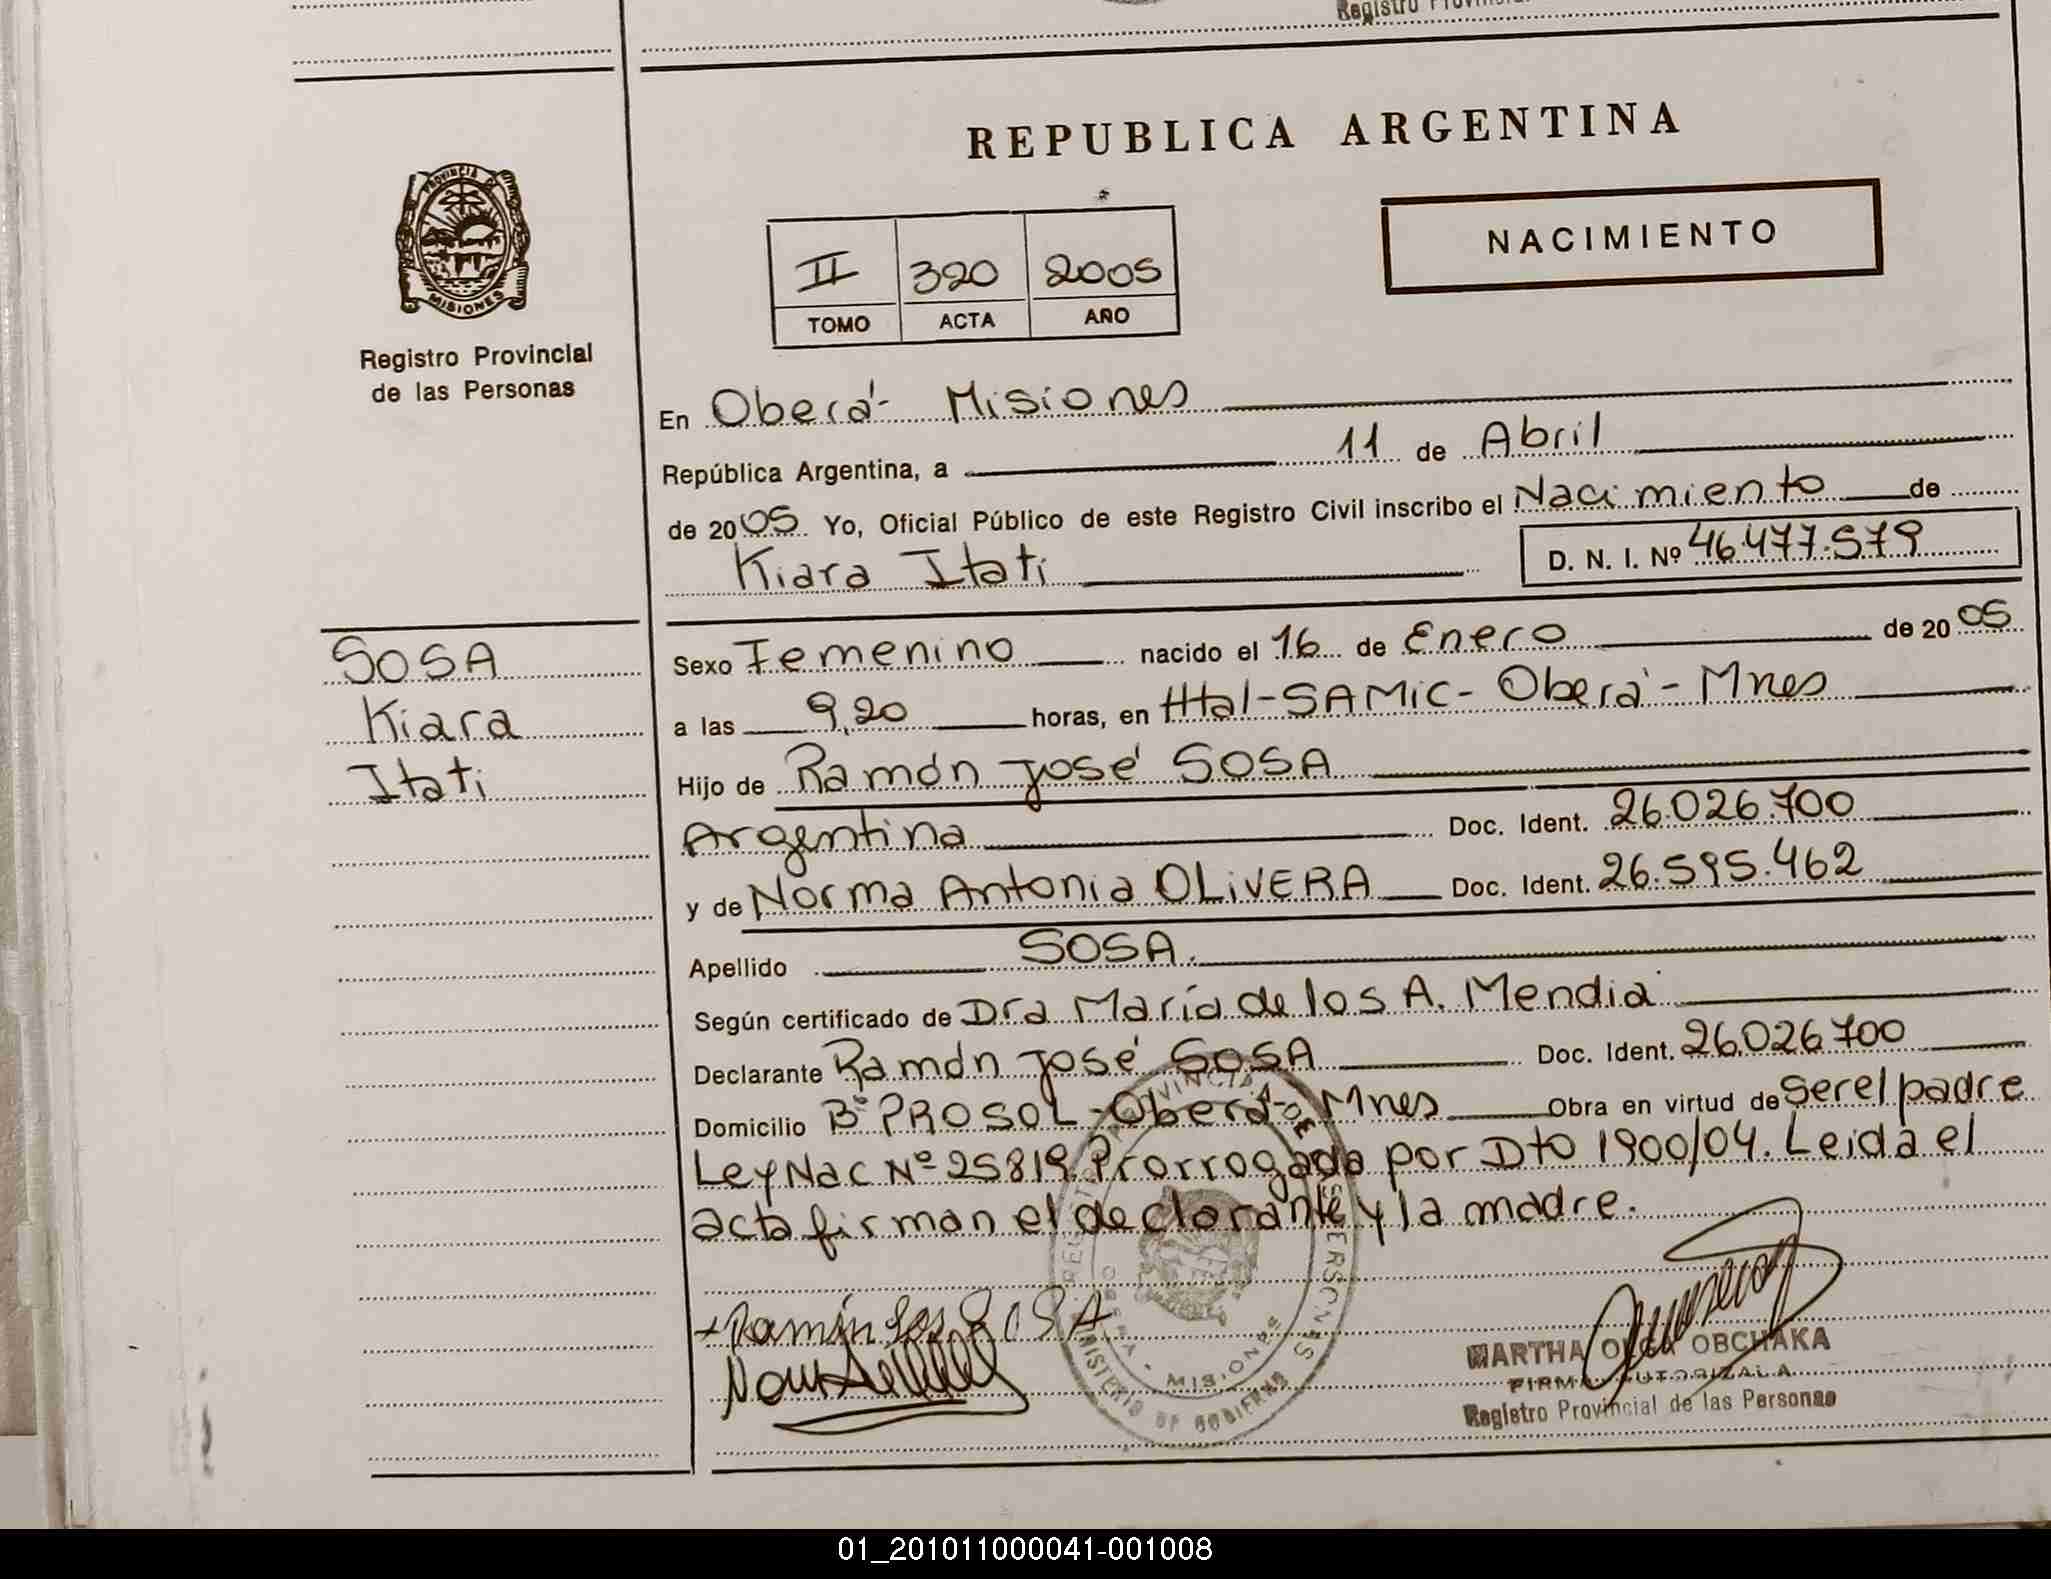 Registro Provincial
REPUBLICA ARGENTINA
PROVINCIA DE
MISIONES
Registro Provincial
de las Personas
NACIMIENTO
II 320 2005
TOMO ACTA AÑO
En Oberá - Misiones
República Argentina, a 11 de Abril
de 2005 Yo, Oficial Público de este Registro Civil inscribo el Nacimiento de
Kiara Itati D. N. I. Nº 46.477.579
SOSA
Kiara
Itati
Sexo Femenino nacido el 16 de Enero de 2005
a las 9,20 horas, en Htal-SAMIC- Oberá - Mnes
Hijo de Ramón José SOSA
Argentina Doc. Ident. 26.026.700
y de Norma Antonia OLIVERA Doc. Ident. 26.595.462
Apellido SOSA.
Según certificado de Dra María de los A. Mendia
Declarante Ramón José SOSA Doc. Ident. 26.026.700
Domicilio Bº PROSOL - Oberá - Mnes Obra en virtud de ser el padre
Ley Nac Nº 25819. Prorrogada por Dto 1900/04. Leida el
acta firman el declarante y la madre.
SOSA
MARTHA OLGA OBCHAKA
FIRMA AUTORIZADA
Registro Provincial de las Personas
MINISTERIO DE GOBIERNO
OBERA - MISIONES
01_201011000041-001008